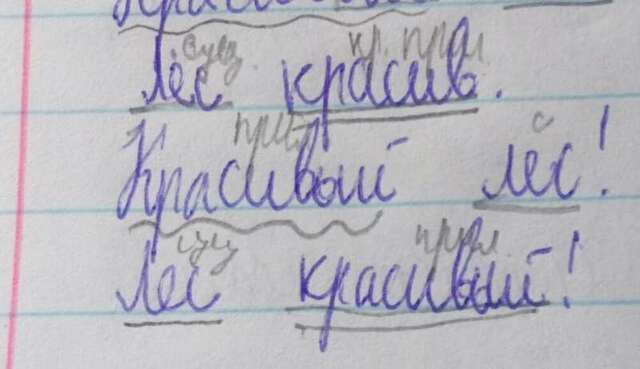 сущ. кр. прил
Лес красив.
прил с
Красивый лес!
сущ прил.
Лес красивый!